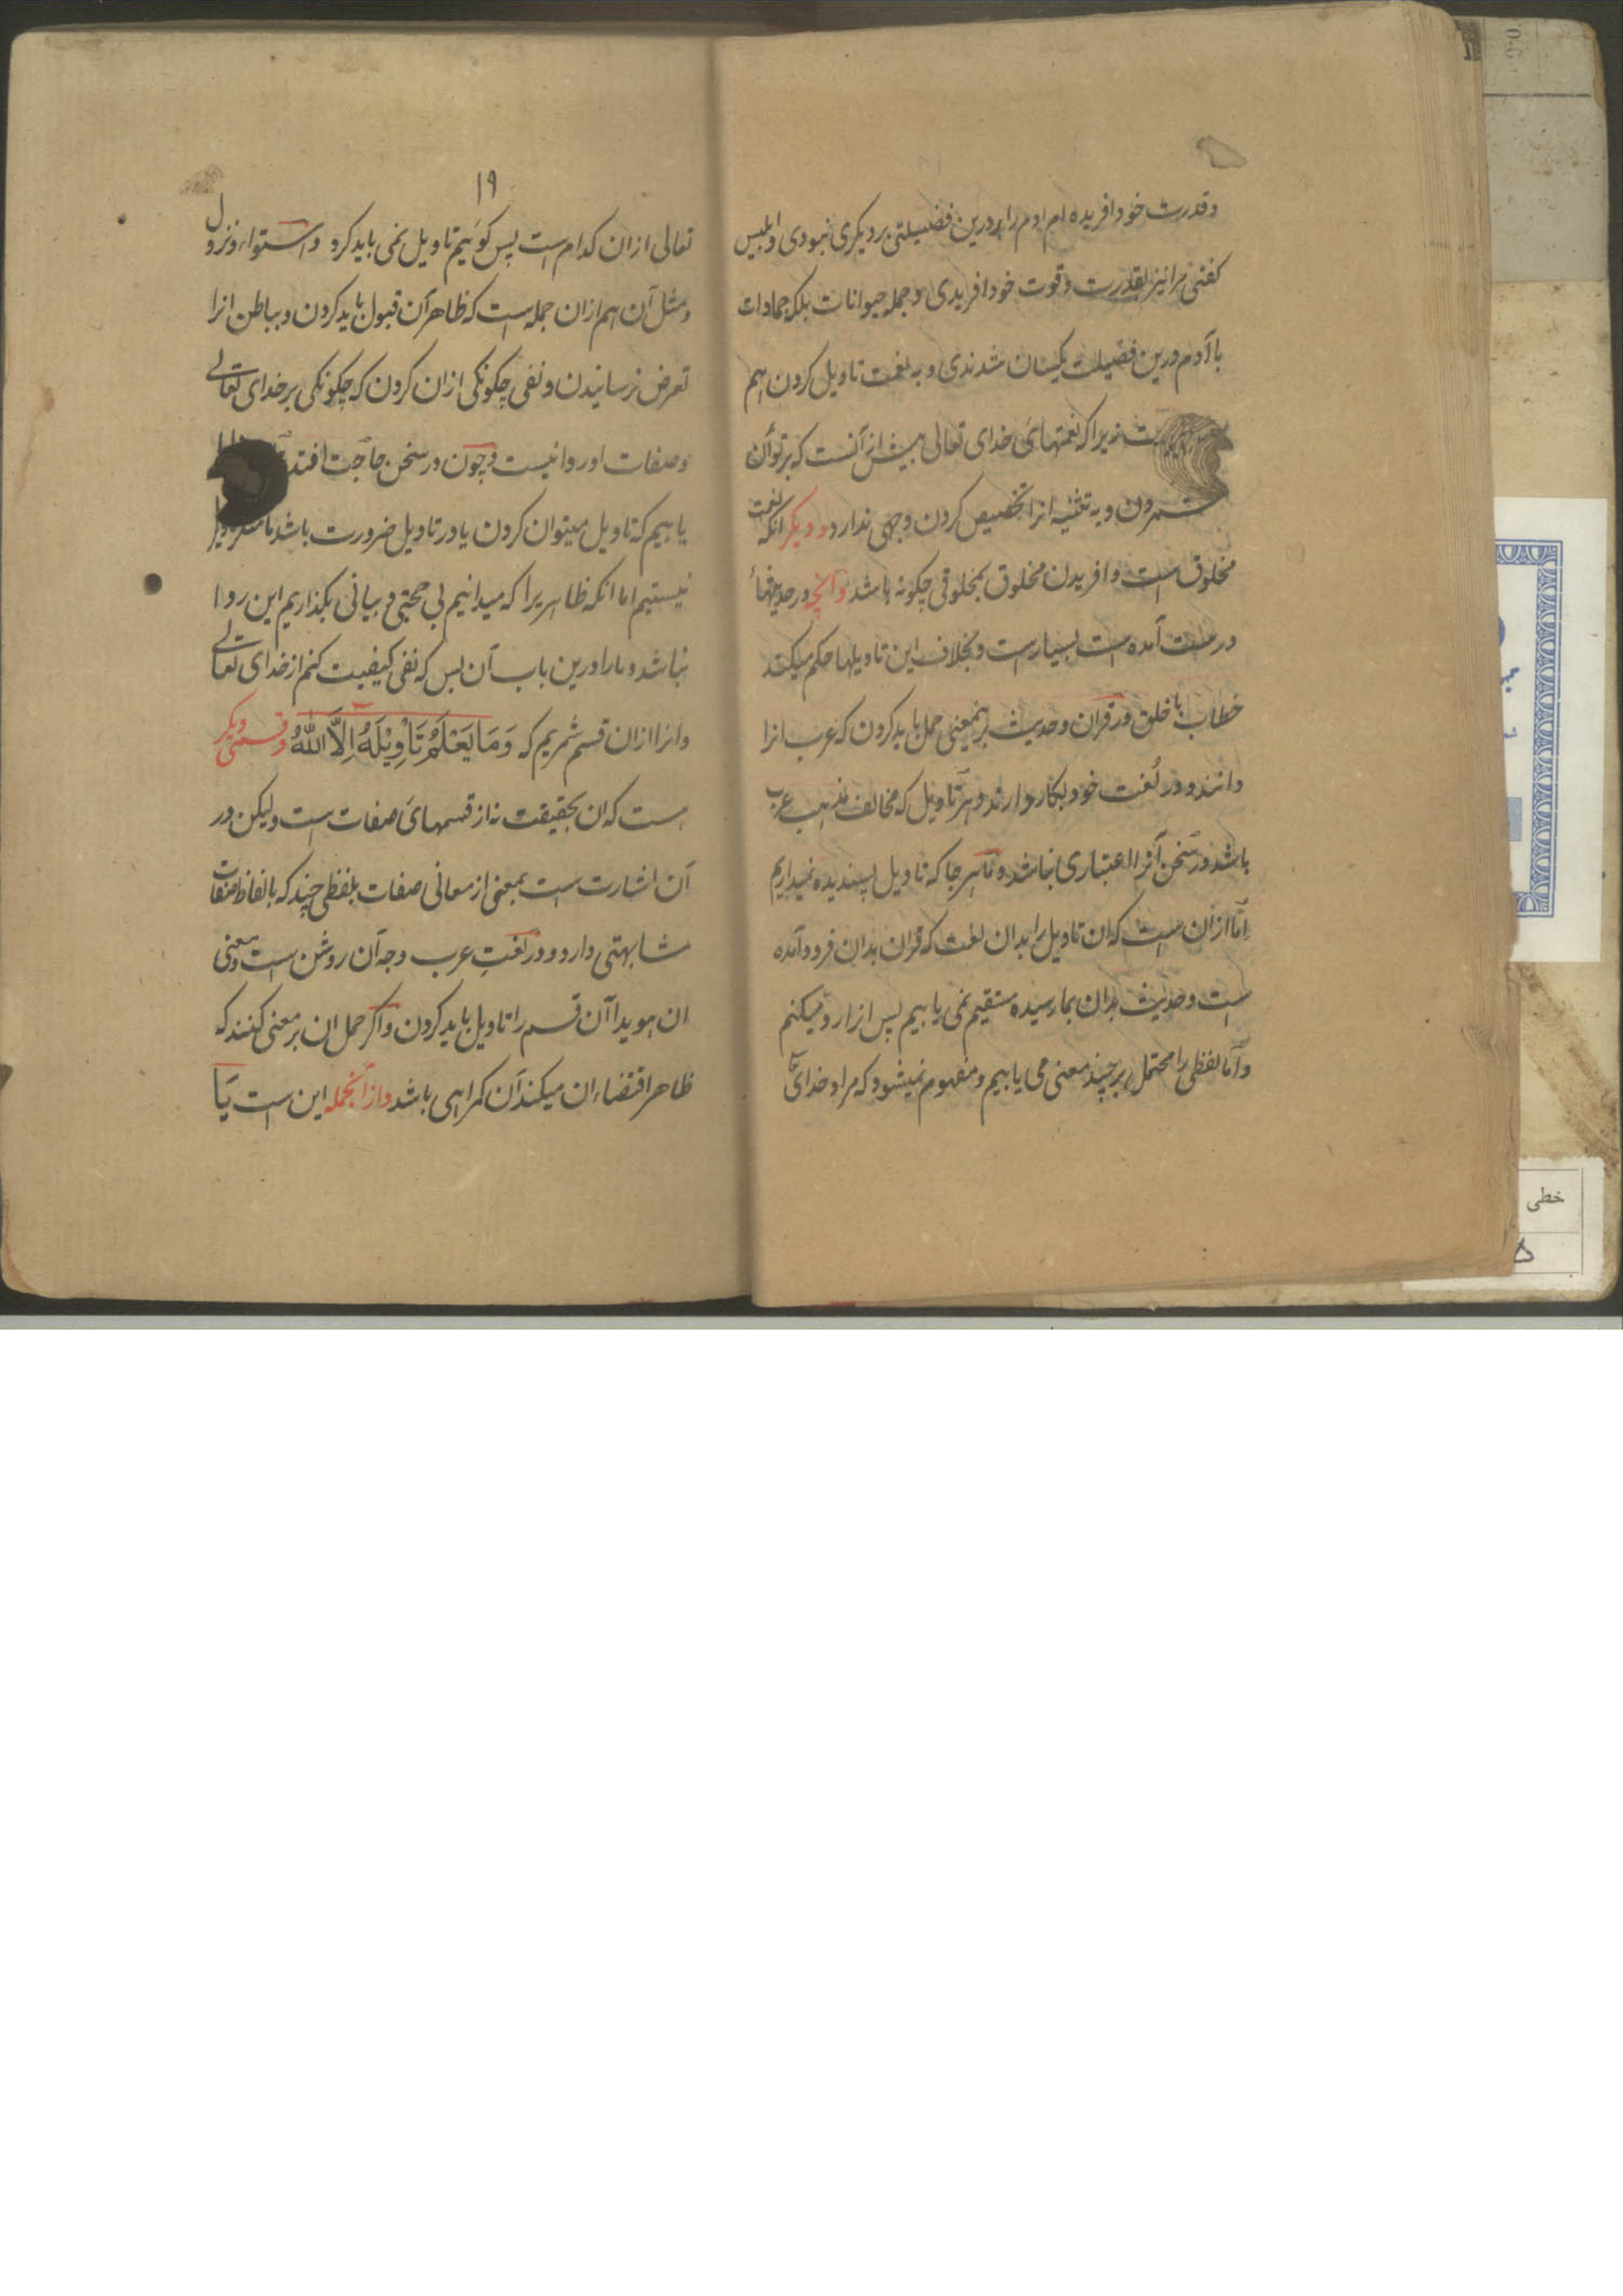 وقدرت خود افریده ام ادم را درین فضیلتی بر دیکری نبودی و ابلیس
کفتی مرا نیز بقدرت وقوت خود افریدی و جمله حیوانات بلکه جمادات
با آدم درین فضیلت یکسان شدندی و به نعمت تاویل کردن هم
زیرا که نعمتهای خدای تعالی بیش از آنست که بر توان
شمردن و به تثنیه انرا تخصیص کردن وجهی ندارد و دیکر انکه نعمت
مخلوق است و افریدن مخلوق بمخلوقی چکونه باشد و آنچه در حدیثهاء
درست آمده است بسیارست و بخلاف این تاویلها حکم میکند
خطاب با خلق در قران و حدیث بر معنی حمل باید کردن که عرب انرا
دانند و در لغت خود بکار دارند و هر تاویل که مخالف مذهب عرب
باشد در سخن آنرا اعتباری نباشد و ما هر جا که تاویل پسندیده نمیداریم
اما ازان است که ان تاویل را بدان لغت که قران بدان فرود آمده
است و حدیث بدان بما رسیده مستقیم نمی یابیم پس انرا رد میکنیم
و اما لفظی را محتمل بر چند معنی می یابیم و مفهوم نمیشود که مراد خدای
۱۹
تعالی ازان کدام است پس کوئیم تاویل نمی باید کرد و استواء و نزول
و مثل آن هم ازان جمله است که ظاهر آن قبول باید کردن و بباطن انرا
تعرض نرسانیدن و نفی چکونکی ازان کردن که چکونکی بر خدای تعالے
و صفات او روا نیست و چون در سخن حاجت افتد
یابیم که تاویل میتوان کردن یا در تاویل ضرورت باشد ما
نیستیم اما انکه ظاهریرا که میدانیم بی حجتی و بیانی بکذاریم این روا
نباشد و ما را درین باب آن بس که نفی کیفیت کنم از خدای تعالے
و انرا ازان قسم شمریم که وَمَا يَعْلَمُ تَأْوِيْلَهُ اِلَّا اللّٰهُ و قسمی دیکر
است که ان بحقیقت نه از قسمهای صفات است ولیکن در
آن اشارت است بمعنی از معانی صفات بلفظی چند که بالفاظ صفات
مشابهتی دارد و در لغتِ عرب وجه آن روشن است و معنی
ان هویدا آن قسم را تاویل باید کردن و اکر حمل ان بر معنی کنند که
ظاهر اقتضاء ان میکند آن کمراهی باشد و ازانجمله این است یَا
خطی
۵